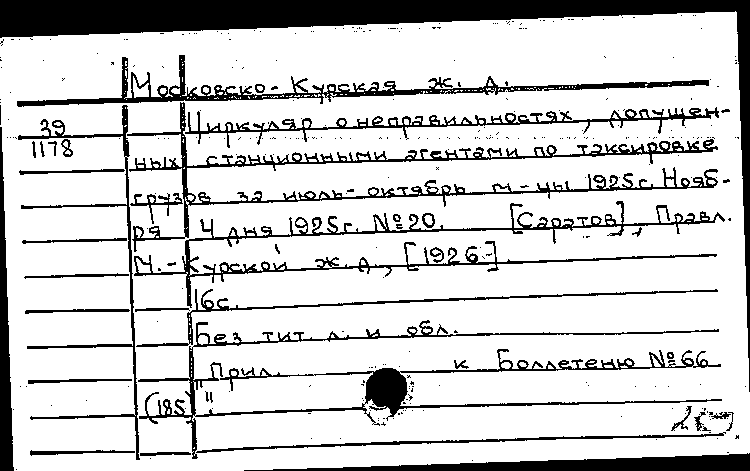 Московско-Курская ж. д.
39
1178
Циркуляр о неправильностях, допущен-
ных станционными агентами по таксировке
грузов за июль-октябрь м-цы 1925г. Нояб-
ря 4 дня 1925г. №20. [Саратов], Правл.
М.-Курской ж. д., [1926].
16с.
Без тит. л. и обл.
"Прил. к Бюллетеню №66
(185) ".